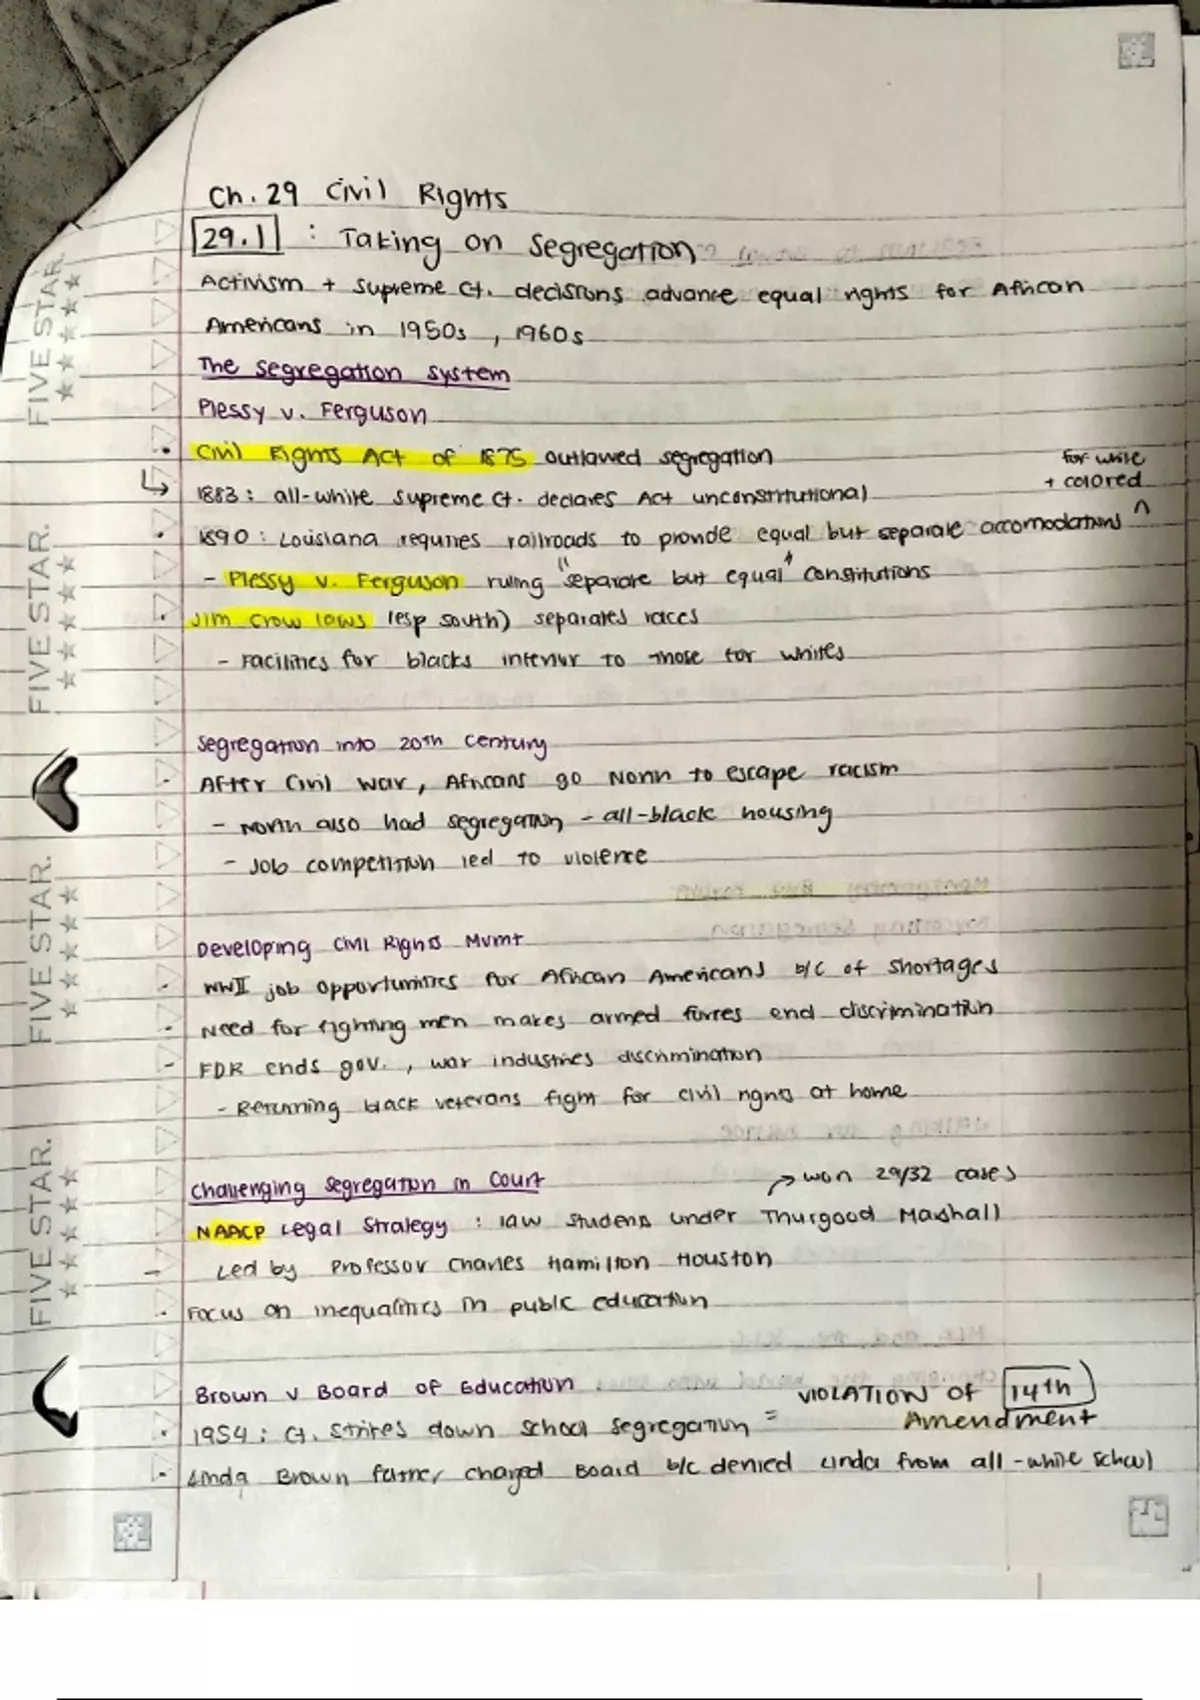 Ch. 29 Civil Rights
29.1 : Taking on Segregation
Activism + Supreme Ct. decisions advance equal rights for African
Americans in 1950s, 1960s
The segregation system
Plessy v. Ferguson
• Civil Rights Act of 1875 outlawed segregation
↳ 1883: all-white Supreme Ct. declares Act unconstitutional
for white
+ colored
• 1890: Louisiana requires railroads to provide equal but separate accomodations ^
- Plessy v. Ferguson ruling "separate but equal" constitutions
• Jim Crow laws (esp south) separates races
- Facilities for blacks inferior to those for whites
Segregation into 20th century
- After Civil War, Africans go North to escape racism
- North also had segregation - all-black housing
- Job competition led to violence
Developing Civil Rights Mvmt
• WWII job opportunities for African Americans b/c of shortages
• Need for fighting men makes armed forces end discrimination
- FDR ends gov., war industries discrimination
- Returning black veterans fight for civil rights at home
Challenging segregation in Court
→ won 29/32 cases
NAACP Legal Strategy : law students under Thurgood Marshall
- Led by Professor Charles Hamilton Houston
• Focus on inequalities in public education
Brown v Board of Education
VIOLATION OF 14th
Amendment
• 1954: Ct. strikes down school segregation =
• Linda Brown father charged Board b/c denied Linda from all-white school
FIVE STAR.
FIVE STAR.
FIVE STAR.
FIVE STAR.